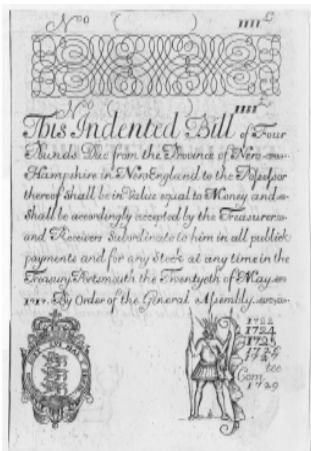 No ( ) IIII £
No ( ) IIII £
This Indented Bill of Four
Pounds Due from the Province of New
Hampshire in New England to the Possessor
thereof shall be in Value equal to Money and
shall be accordingly accepted by the Treasurer
and Receivers Subordinate to him in all publick
payments and for any Stock at any time in the
Treasury Portsmouth the Twentyeth of May
1717. By Order of the General Assembly
1722
1724
1725
1726
1727
Com tee
1729